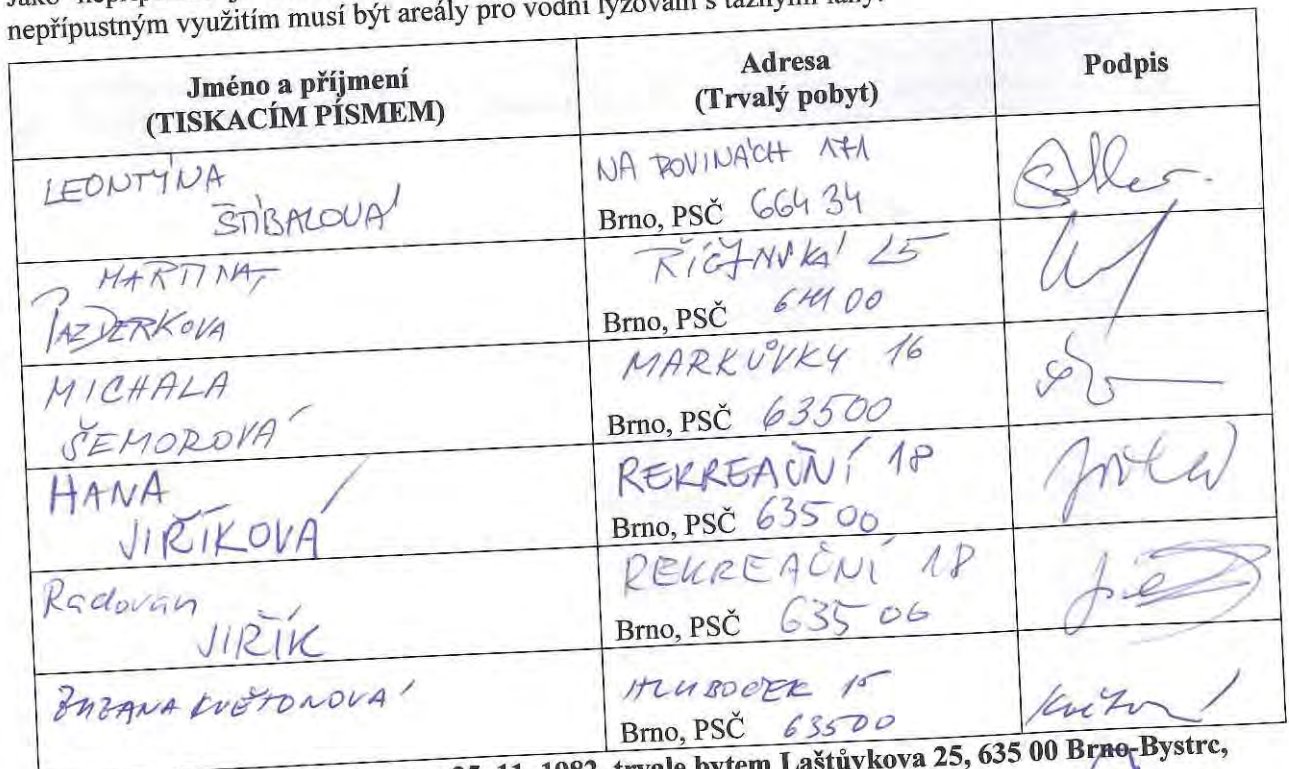 nepřípustným využitím musí být areály pro vodní lyžování s tažnými lany.
Jméno a příjmení
(TISKACÍM PÍSMEM)
Adresa
(Trvalý pobyt)
Podpis
LEONTÝNA
ŠTÍBALOVÁ
NA ROVINÁCH 171
Brno, PSČ 664 34
MARTINA
PAZDERKOVA
ŘÍČANSKÁ 25
Brno, PSČ 641 00
MICHALA
ŠEMOROVÁ
MARKŮVKY 16
Brno, PSČ 63500
HANA
JIŘÍKOVÁ
REKREAČNÍ 18
Brno, PSČ 635 00
Radovan
JIŘÍK
REKREAČNÍ 18
Brno, PSČ 635 00
ZUZANA KVĚTONOVÁ
HLUBOČEK 15
Brno, PSČ 63500
11. 1982, trvale bytem Laštůvkova 25, 635 00 Brno-Bystrc,